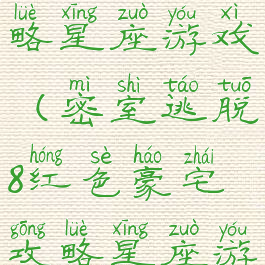 lüè xīng zuò yóu xì
略星座游戏
mì shì táo tuō
(密室逃脱
hóng sè háo zhái
8红色豪宅
gōng lüè xīng zuò yóu
攻略星座游